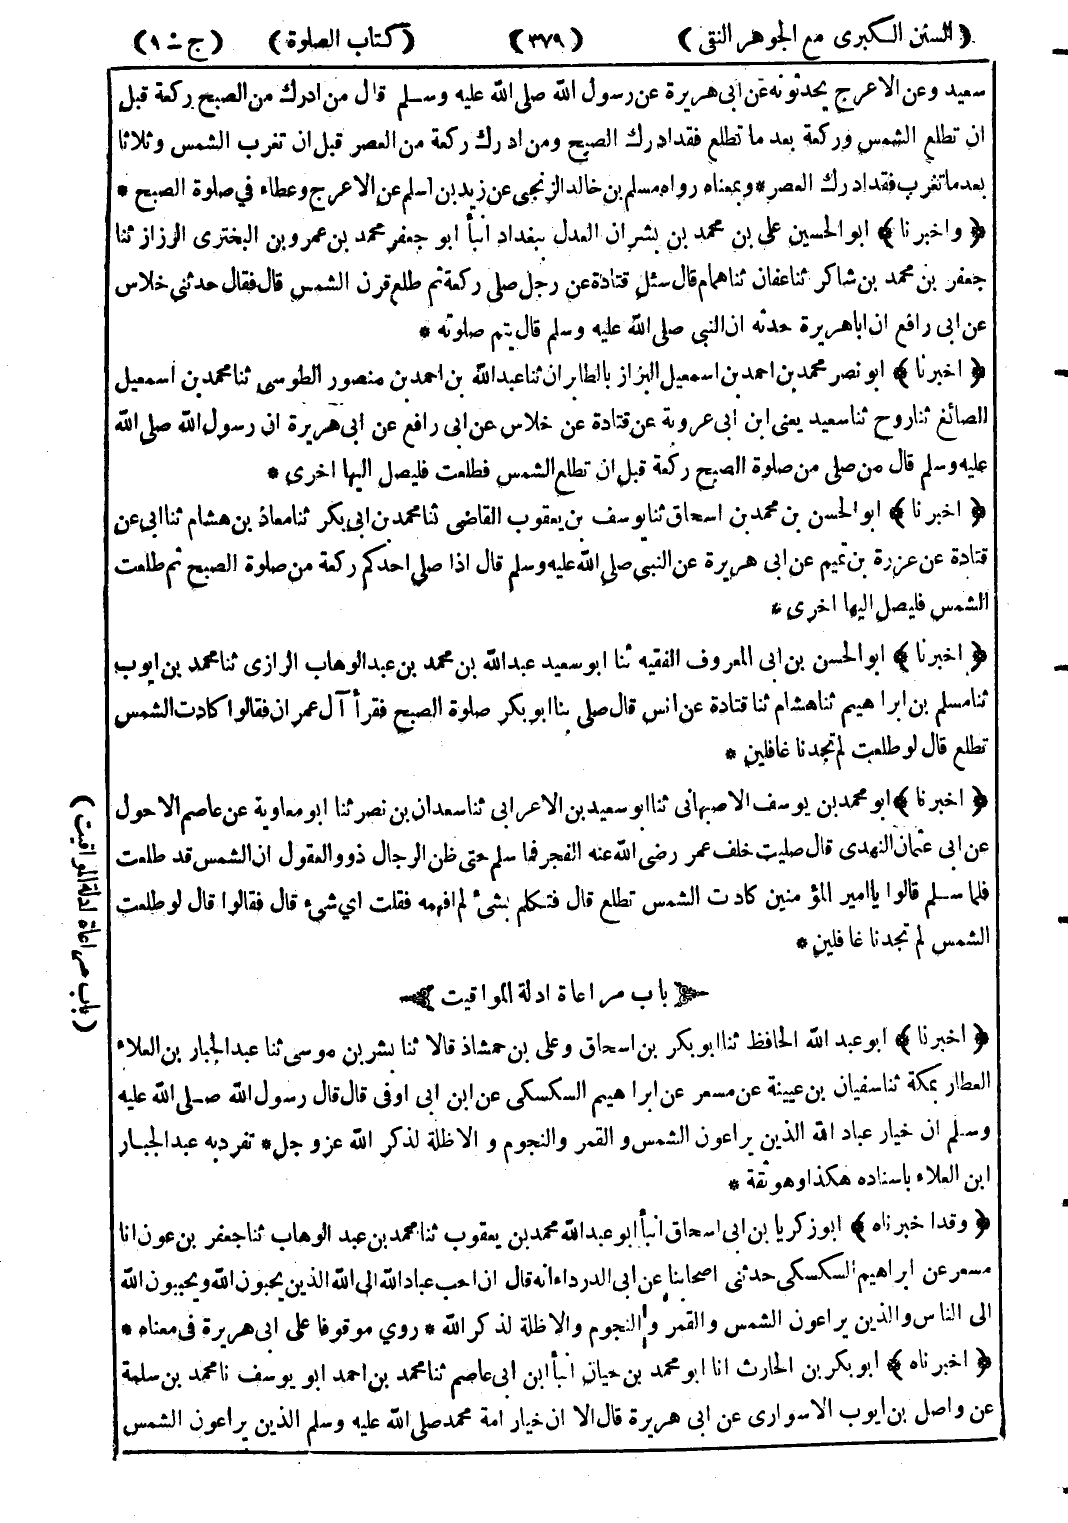 (السنن الكبرى مع الجوهر النقى) (٣٧٩) (كتاب الصلوة) (ج - ١)
سعيد وعن الاعرج يحدثونه عن ابى هريرة عن رسول الله صلى الله عليه وسلم قال من ادرك من الصبح ركعة قبل
ان تطلع الشمس وركعة بعد ما تطلع فقد ادرك الصبح ومن ادرك ركعة من العصر قبل ان تغرب الشمس وثلاثا
بعد ما تغرب فقد ادرك العصر * وبمعناه رواه مسلم بن خالد الزنجى عن زيد بن اسلم عن الاعرج وعطاء في صلوة الصبح *
﴿ واخبرنا ﴾ ابو الحسين على بن محمد بن بشران العدل ببغداد انبأ ابو جعفر محمد بن عمرو بن البخترى الرزاز ثنا
جعفر بن محمد بن شاكر ثنا عفان ثنا همام قال سئل قتادة عن رجل صلى ركعة ثم طلع قرن الشمس قال فقال حدثني خلاس
عن ابى رافع ان اباهريرة حدثه ان النبي صلى الله عليه وسلم قال يتم صلوته *
﴿ اخبرنا ﴾ ابو نصر محمد بن احمد بن اسمعيل البزاز بالطابران ثنا عبدالله بن احمد بن منصور الطوسى ثنا محمد بن اسمعيل
الصائغ ثنا روح ثنا سعيد يعنى ابن ابى عروبة عن قتادة عن خلاس عن ابى رافع عن ابى هريرة ان رسول الله صلى الله
عليه وسلم قال من صلى من صلوة الصبح ركعة قبل ان تطلع الشمس فطلعت فليصل اليها اخرى *
﴿ اخبرنا ﴾ ابو الحسن بن محمد بن اسحاق ثنا يوسف بن يعقوب القاضى ثنا محمد بن ابى بكر ثنا معاذ بن هشام ثنا ابى عن
قتادة عن عزرة بن تميم عن ابى هريرة عن النبي صلى الله عليه وسلم قال اذا صلى احدكم ركعة من صلوة الصبح ثم طلعت
الشمس فليصل اليها اخرى *
﴿ اخبرنا ﴾ ابو الحسن بن ابى المعروف الفقيه ثنا ابو سعيد عبدالله بن محمد بن عبدالوهاب الرازى ثنا محمد بن ايوب
ثنا مسلم بن ابراهيم ثنا هشام ثنا قتادة عن انس قال صلى بنا ابو بكر صلوة الصبح فقرأ آل عمران فقالوا كادت الشمس
تطلع قال لو طلعت لم تجدنا غافلين *
﴿ اخبرنا ﴾ ابو محمد بن يوسف الاصبهانى ثنا ابو سعيد بن الاعرابى ثنا سعدان بن نصر ثنا ابو معاوية عن عاصم الاحول
عن ابى عثمان النهدى قال صليت خلف عمر رضى الله عنه الفجر فما سلم حتى ظن الرجال ذوو العقول ان الشمس قد طلعت
فلما سلم قالوا يا امير المؤمنين كادت الشمس تطلع قال فتكلم بشئ لم افهمه فقلت اي شيء قال فقالوا قال لو طلعت
الشمس لم تجدنا غافلين *
باب مراعاة ادلة المواقيت
﴿ اخبرنا ﴾ ابو عبد الله الحافظ ثنا ابو بكر بن اسحاق وعلى بن حمشاذ قالا ثنا بشر بن موسى ثنا عبد الجبار بن العلاء
العطار بمكة ثنا سفيان بن عيينة عن مسعر عن ابراهيم السكسكى عن ابن ابى اوفى قال قال رسول الله صلى الله عليه
وسلم ان خيار عباد الله الذين يراعون الشمس و القمر والنجوم و الاظلة لذكر الله عز وجل * تفرد به عبد الجبار
ابن العلاء باسناده هكذا وهو ثقة *
﴿ وقد اخبرناه ﴾ ابو زكريا بن ابى اسحاق انبأ ابو عبدالله محمد بن يعقوب ثنا محمد بن عبد الوهاب ثنا جعفر بن عون انا
مسعر عن ابراهيم السكسكى حدثنى اصحابنا عن ابى الدرداء انه قال ان احب عباد الله الى الله الذين يحبون الله ويحببون الله
الى الناس والذين يراعون الشمس والقمر والنجوم والاظلة لذكر الله * روي موقوفا على ابى هريرة فى معناه *
﴿ اخبرناه ﴾ ابو بكر بن الحارث انا ابو محمد بن حيان انبأ ابن ابى عاصم ثنا محمد بن احمد ابو يوسف نا محمد بن سلمة
عن واصل بن ايوب الاسوارى عن ابى هريرة قال الا ان خيار امة محمد صلى الله عليه وسلم الذين يراعون الشمس
(باب مراعاة ادلة المواقيت)